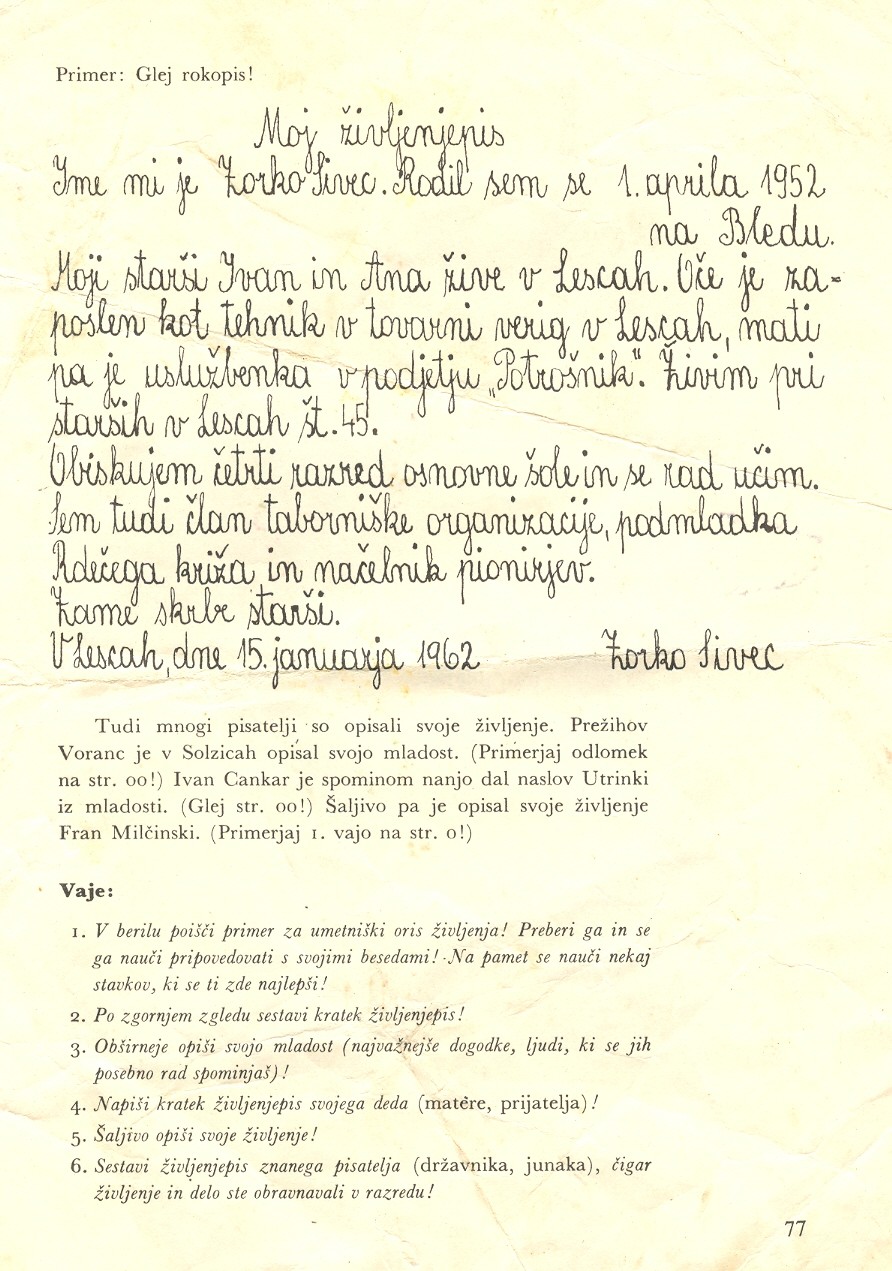 Primer: Glej rokopis!
Moj življenjepis
Ime mi je Zorko Sivec. Rodil sem se 1. aprila 1952
na Bledu.
Moji starši Ivan in Ana žive v Lescah. Oče je za-
poslen kot tehnik v tovarni verig v Lescah, mati
pa je uslužbenka v podjetju „Potrošnik“. Živim pri
starših v Lescah št. 45.
Obiskujem četrti razred osnovne šole in se rad učim.
Sem tudi član taborniške organizacije, podmladka
Rdečega križa in načelnik pionirjev.
Zame skrbe starši.
V Lescah, dne 15. januarja 1962 Zorko Sivec
Tudi mnogi pisatelji so opisali svoje življenje. Prežihov
Voranc je v Solzicah opisal svojo mladost. (Primerjaj odlomek
na str. 00!) Ivan Cankar je spominom nanjo dal naslov Utrinki
iz mladosti. (Glej str. 00!) Šaljivo pa je opisal svoje življenje
Fran Milčinski. (Primerjaj 1. vajo na str. 0!)
Vaje:
1. V berilu poišči primer za umetniški oris življenja! Preberi ga in se
ga nauči pripovedovati s svojimi besedami! Na pamet se nauči nekaj
stavkov, ki se ti zde najlepši!
2. Po zgornjem zgledu sestavi kratek življenjepis!
3. Obširneje opiši svojo mladost (najvažnejše dogodke, ljudi, ki se jih
posebno rad spominjaš)!
4. Napiši kratek življenjepis svojega deda (matere, prijatelja)!
5. Šaljivo opiši svoje življenje!
6. Sestavi življenjepis znanega pisatelja (državnika, junaka), čigar
življenje in delo ste obravnavali v razredu!
77